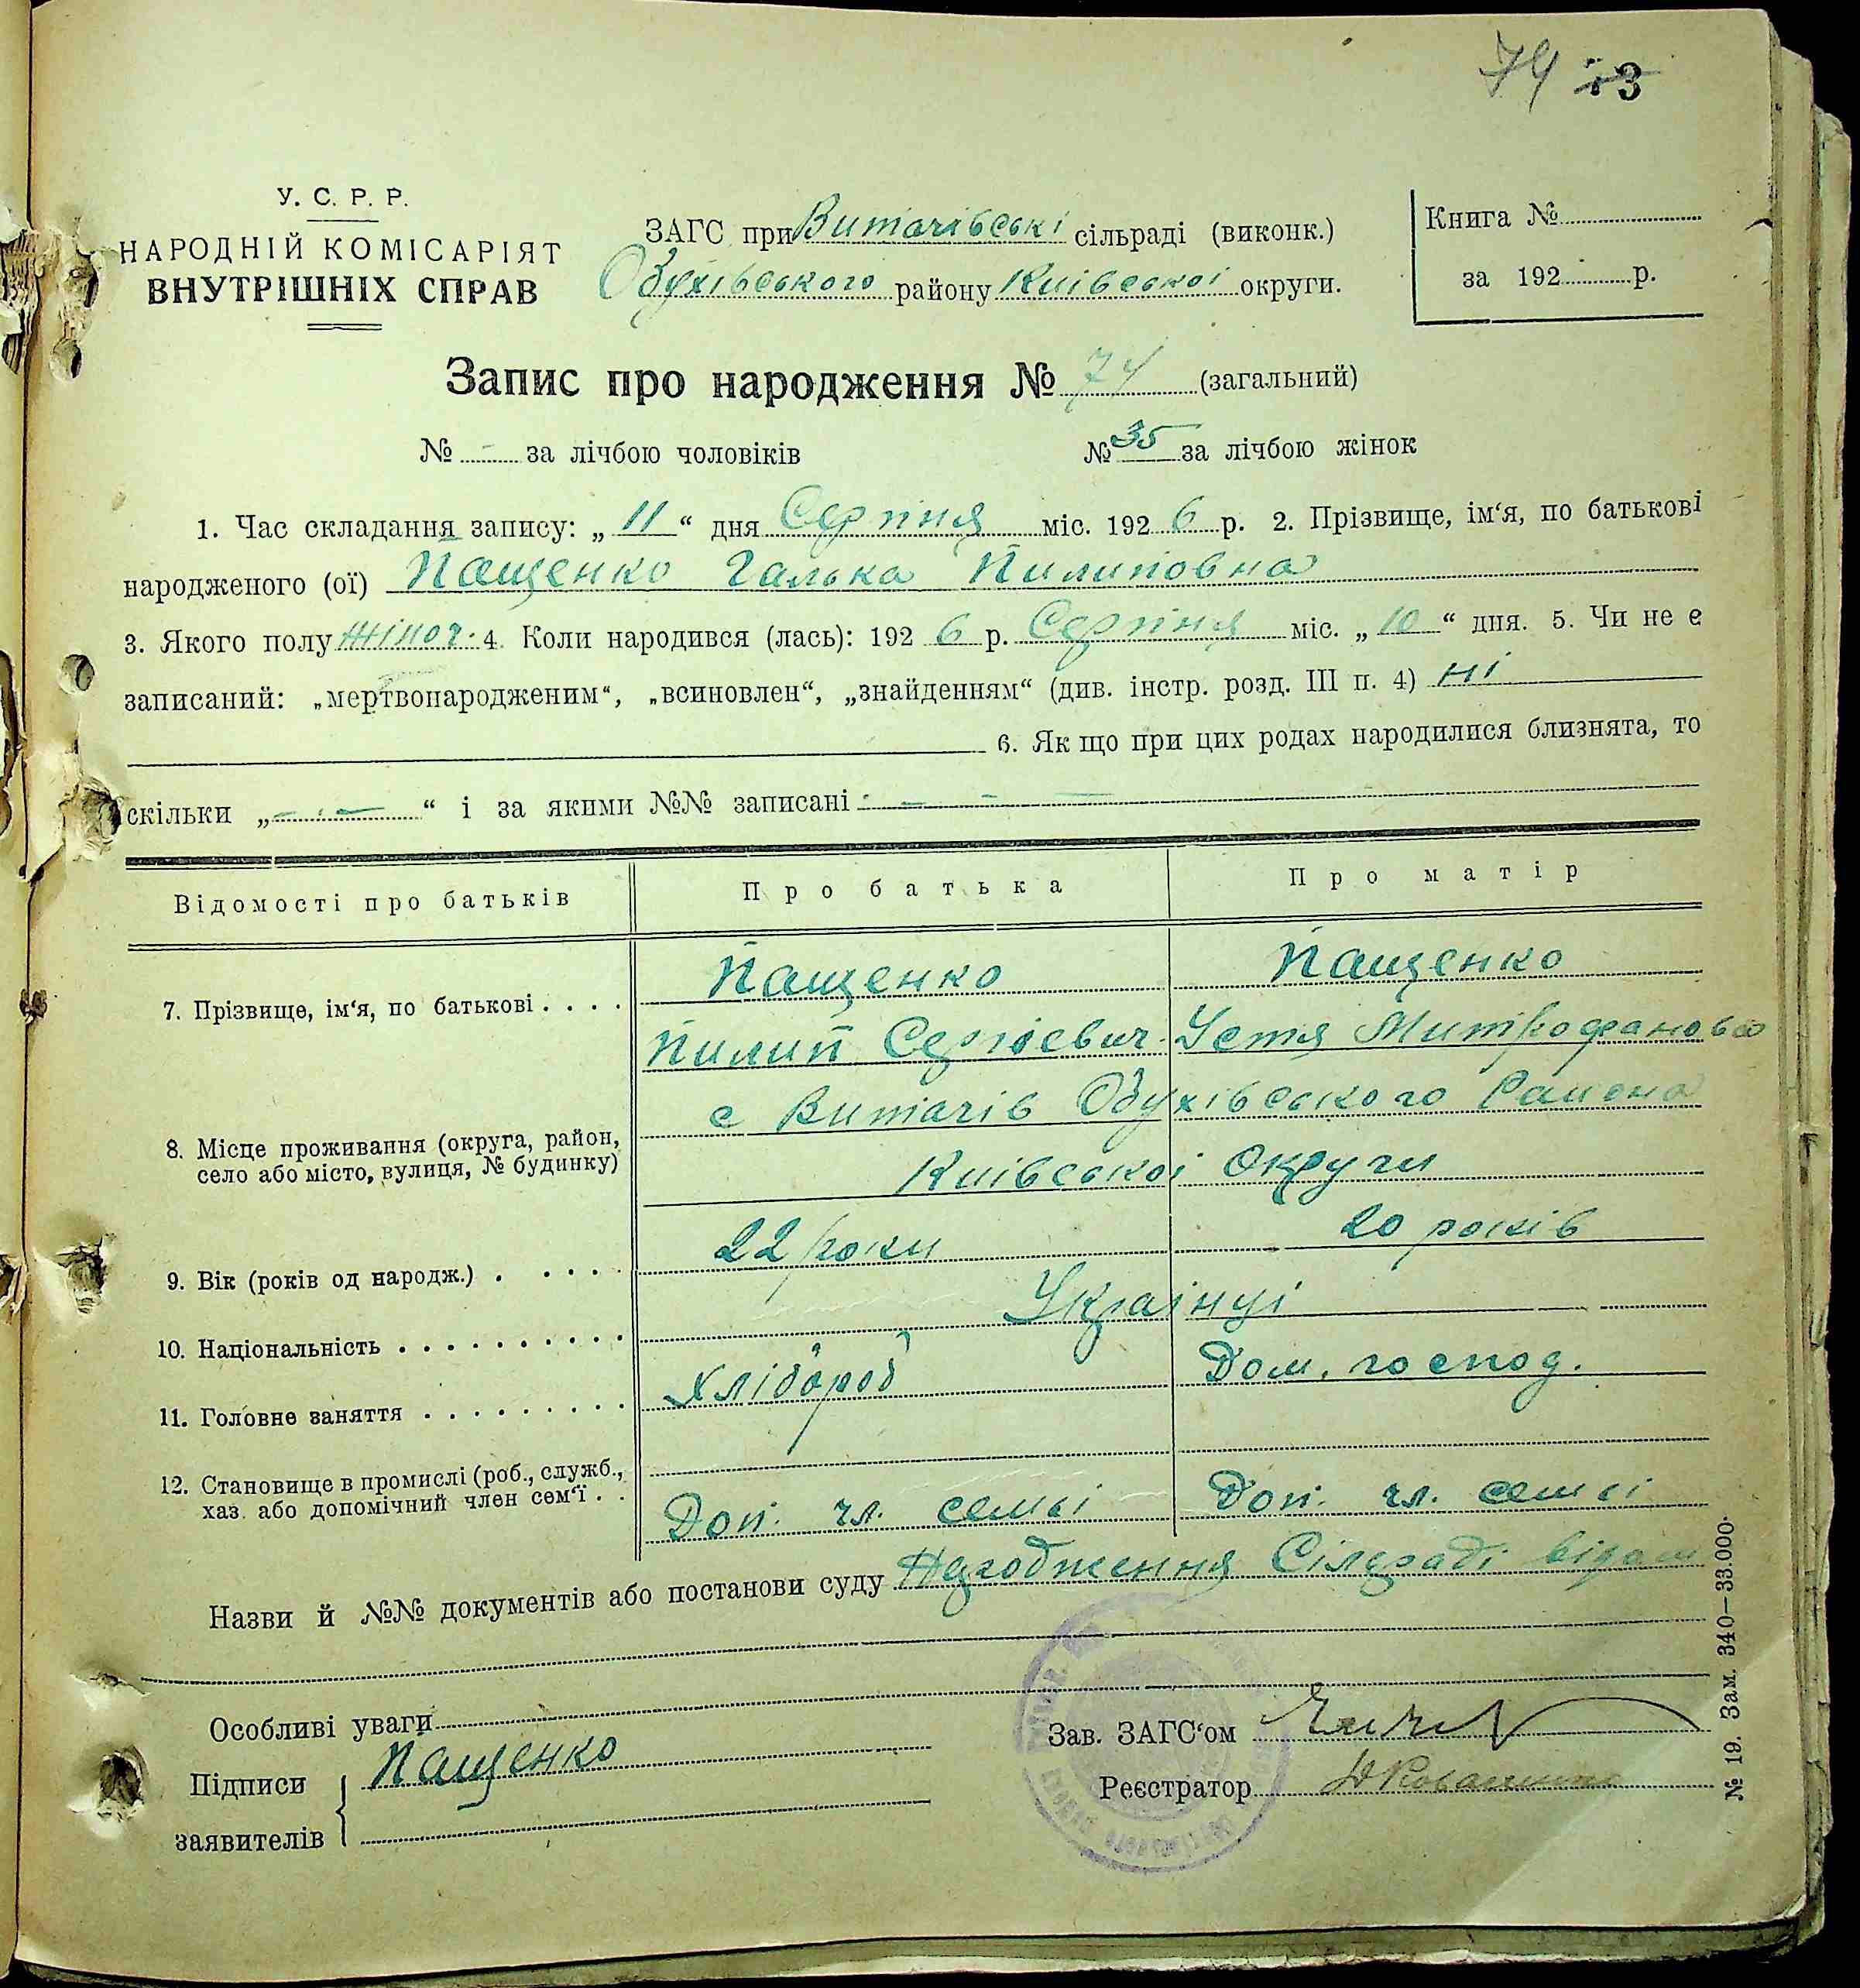 74 73
У. С. Р. Р.
НАРОДНІЙ КОМІСАРІЯТ
ВНУТРІШНІХ СПРАВ
ЗАГС при Витачівські сільраді (виконк.)
Обухівського району Київської округи.
Книга №
за 192 р.
Запис про народження № 74 (загальний)
№ - за лічбою чоловіків № 35 за лічбою жінок
1. Час складання запису: „ 11 “ дня Серпня міс. 192 6 р. 2. Прізвище, ім‘я, по батькові
народженого (ої) Пащенко Галька Пилиповна
3. Якого полу жіноч. 4. Коли народився (лась): 192 6 р. Серпня міс. „ 10 “ дня. 5. Чи не є
записаний: „мертвонародженим“, „всиновлен“, „знайденням“ (див. інстр. розд. III п. 4) ні
6. Як що при цих родах народилися близнята, то
скільки „ - - “ і за якими №№ записані - - -
Відомості про батьків Про батька Про матір
7. Прізвище, ім‘я, по батькові . . . .
Пащенко Пащенко
Пилип Сергієвич Устя Митрофановна
8. Місце проживання (округа, район,
село або місто, вулиця, № будинку)
с Витачів Обухівського Района
Київської Округи
9. Вік (років од народж.) . . . . . 22 роки 20 років
10. Національність . . . . . . . . . . Українці
11. Головне заняття . . . . . . . . . Хлібороб Дом. господ.
12. Становище в промислі (роб., служб.,
хаз. або допомічний член сем‘ї . .
Доп. чл. семьі Доп. чл. семьі
Назви й №№ документів або постанови суду Народження Сілраді відом
Особливі уваги
Підписи
заявителів
Пащенко
Зав. ЗАГС‘ом
Реєстратор
№ 19. Зам. 340—33.000.